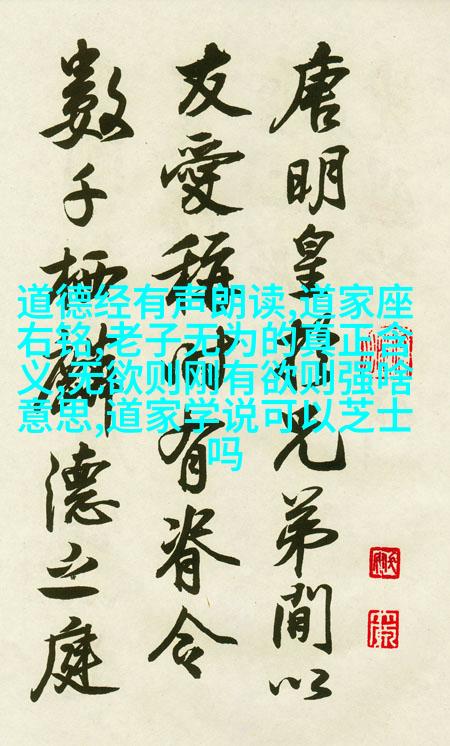 唐明皇於兄弟間以
友愛稱時有脊令
數千栖麟德之庭
道德经有声朗读,道家座
右铭,老子无为的真正含
义,无欲则刚有欲则强啥
意思,道家学说可以芝士
吗